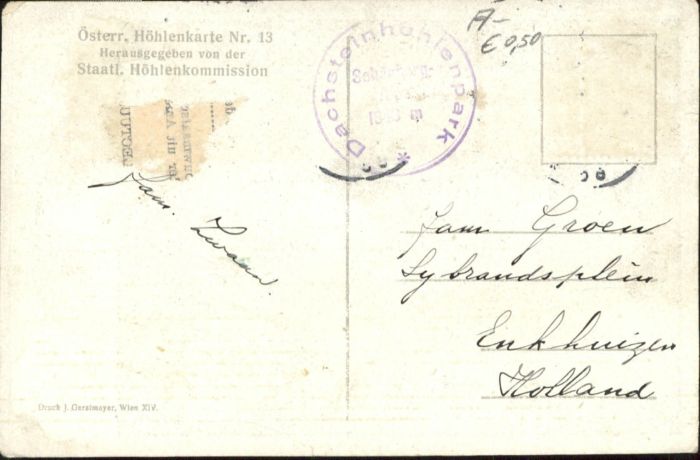 Österr. Höhlenkarte Nr. 13
Herausgegeben von der
Staatl. Höhlenkommission
Dachsteinhöhlenpark
m
A-
€ 0,50
fam. Zwaan.
fam Groen
Sybrandsplein
Enkhuizen
Holland
Druck J. Gerstmayer, Wien XIV.